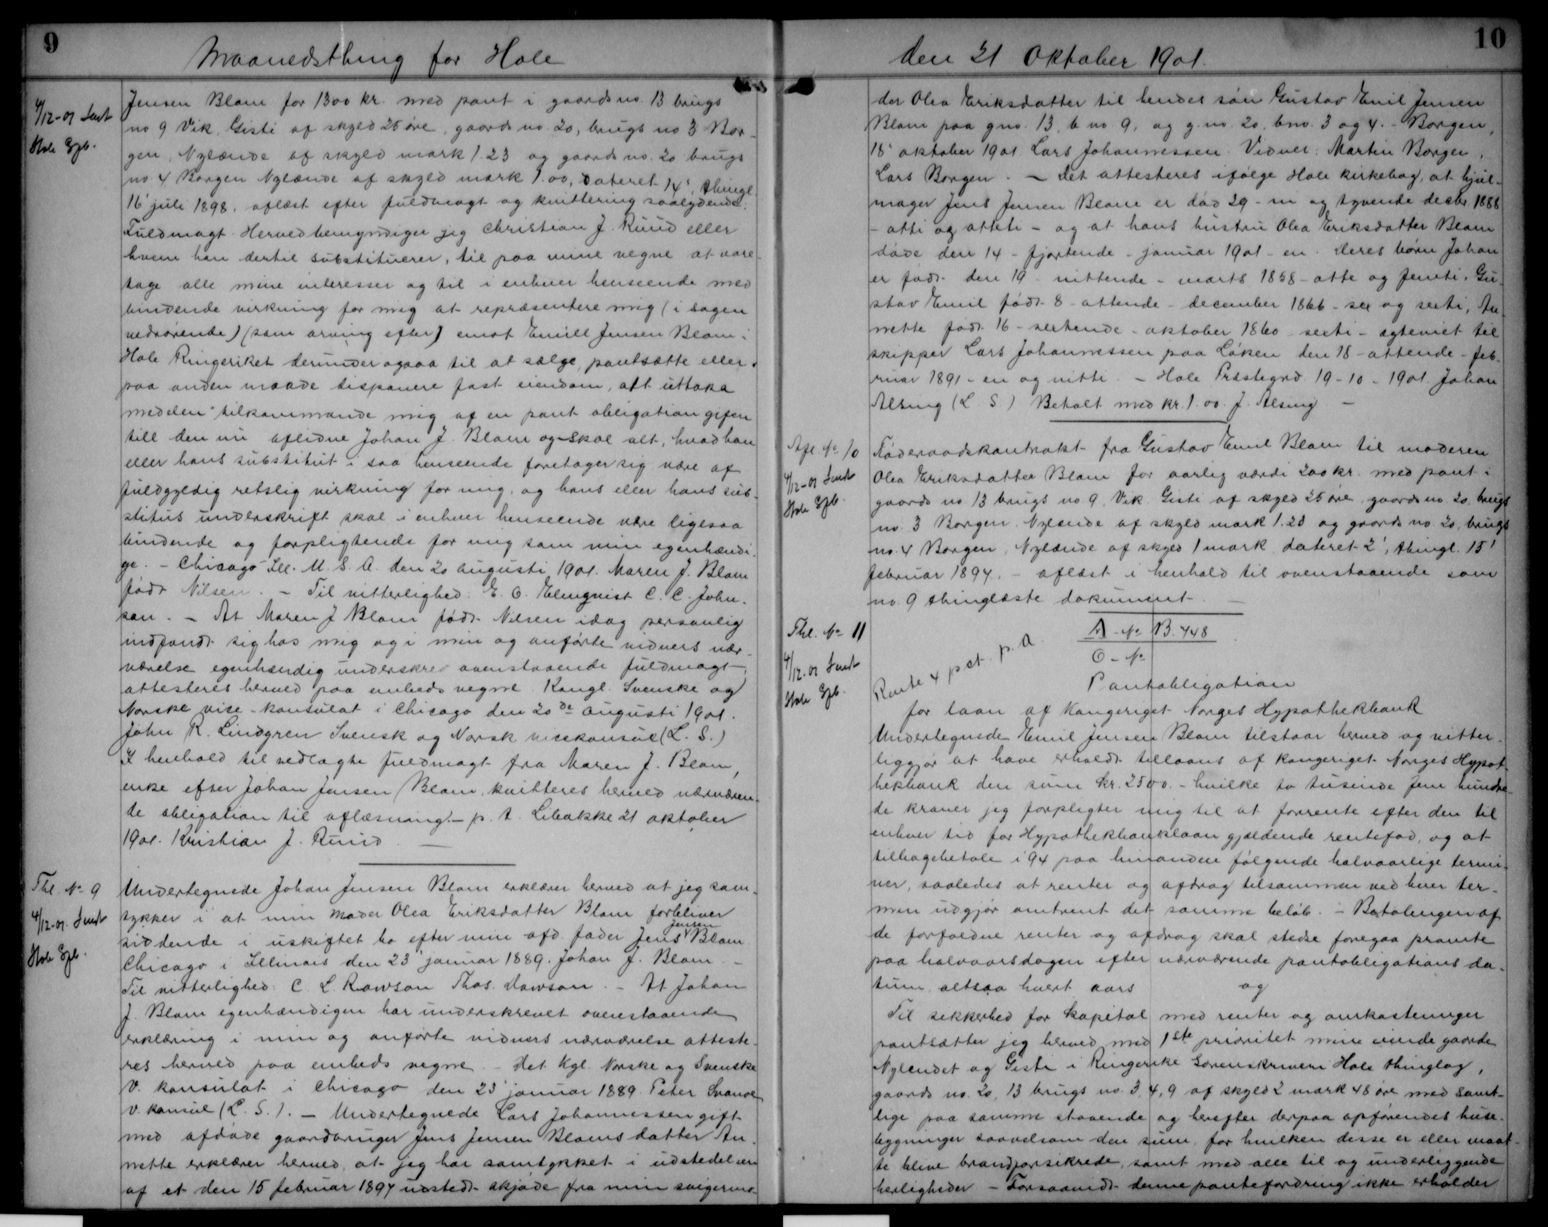 9
Maanedsthing for Hole
4/12-01 Sendt
Hole Gjb.
Jensen Blom for 1300 kr. med pant i gaards no. 13 brugs
no 9 Vik, Gisti af skyld 25 øre, gaards no. 20, brugs no 3 Bor-
gen, Nylænde af skyld mark 1.23 og gaards no. 20 brugs
no 4 Borgen Nylænde af skyld mark 1.00, dateret 14', thingl
16' juli 1898. aflæst efter fuldmagt og kvittering saalydende:
Fuldmagt. Herved bemyndiger jeg Christian J. Ruud eller
hvem han dertil substituerer, til paa mine vegne at vare-
tage alle mine interesser og til i enhver henseende med
bindende virkning for mig at repræsentere mig (i sagen
vedrørende) (som arving efter) emot Emill Jensen Blom i
Hole Ringeriket derunder ogsaa til at sælge, pantsætte eller
paa anden maade disponere fast eiendom, att uttaka
medelen tilkommande mig af en pant obligation gifen
till den nu aflidne Johan J. Blom og skal alt, hvad han
eller hans substitut i saa henseende foretager sig være af
fuldgyldig retslig virkning for mig, og hans eller hans sub-
stituts underskrift skal i enhver henseende være ligesaa
bindende og forpligtende for mig som min egenhændi-
ge. - Chicago Ill. U. S. A. den 20 augusti 1901. Maren J. Blom
født Nilsen. - Til vitterlighed: E. O. Elmqvist C. C. John-
son. - At Maren J Blom født Nilsen idag personlig
indfandt sig hos mig og i min og anførte vidners nær-
værelse egenhændig underskrev ovenstaaende fuldmagt,
attesteres herved paa embeds vegne. Kongl. Svenske og
Norske vise-konsulat i Chicago den 20de augusti 1901.
John R. Lindgren Svensk og Norsk vicekonsul (L. S.)
I henhold til vedlagte fuldmagt fra Maren J. Blom,
enke efter Johan Jensen Blom, kvitteres herved nærværen-
de obligation til aflæsning. - p. t. Libakke 21 oktober
1901. Kristian J. Ruud
Thl. No 9
4/12-01. Sendt
Hole Gjb.
Undertegnede Johan Jensen Blom erklærer herved at jeg sam-
tykker i at min moder Olea Eriksdatter Blom forbliver
siddende i uskiftet bo efter min afd. fader Jens Jensen Blom
Chicago i Illinois den 23' januar 1889. Johan J. Blom. -
Til vitterlighed: C. L. Rawson Thos. Dawson. - At Johan
J. Blom egenhændigen har underskrevet ovenstaaende
erklæring i min og anførte vidners nærværelse atteste-
res herved paa embeds vegne. - Det Kgl. Norske og Svenske
V. konsulat i Chicago den 23' januar 1889. Peter Svanoe
v. konsul (L. S.). - Undertegnede Lars Johannessen gift
med afdøde gaardbruger Jens Jensen Bloms datter An-
nette erklærer herved, at jeg har samtykket i udstedelsen
af et den 15 februar 1894 udstedt skjøde fra min svigermo-
10
den 21 Oktober 1901.
der Olea Eriksdatter til hendes søn Gustav Emil Jensen
Blom paa gno. 13, b no 9, og g. no. 20, bno. 3 og 4. - Borgen,
18' oktober 1901. Lars Johannessen. Vidner: Martin Borgen,
Lars Borgen. - Det attesteres ifølge Hole kirkebog, at hjul-
mager Jens Jensen Blom er død 29 - ni og tyvende decbr. 1888
- otti og otteti - og at hans hustru Olea Eriksdatter Blom
døde den 14 - fjortende - januar 1901 - en. Deres børn Johan
er født den 19 - nittende - marts 1858 - otte og femti, Gu-
stav Emil født 8 - ottende - december 1866 - sex og sexti, An-
nette født 16 - sextende - oktober 1860 - sexti - egteviet til
skipper Lars Johannessen paa Løken den 18 - attende - feb-
ruar 1891 - en og nitti. - Hole Prestegrd 19 - 10 - 1901. Johan
Alsing (L. S.) Betalt med kr. 1.00. J. Alsing -
Afl No 10
4/12-01 Sendt
Hole Gjb
Føderaadskontrakt fra Gustav Emil Blom til moderen
Olea Eriksdatter Blom for aarlig værdi 200 kr. med pant i
gaards no 13 brugs no 9. Vik. Gisti af skyld 25 øre, gaards no. 20, brugs
no. 3 Borgen, Nylænde af skyld mark 1.23 og gaards no. 20, brugs
no. 4 Borgen, Nylænde af skyld 1 mark, dateret 2', thingl. 15'
februar 1894. - aflæst i henhold til ovenstaaende som
no. 9 thinglæste dokument. -
Thl. No 11
4/12-01 Sendt
Hole Gjb.
A - No B. 448
O - No
Rente 4 pct. p. A.
Pantobligation
for laan af Kongeriget Norges Hypothekbank
Undertegnede Emil Jensen Blom tilstaar herved og vitter-
liggjør at have erholdt tillaans af kongeriget Norges Hypot-
hekbank den sum kr. 2500 - hvilke to tusinde fem hundre-
de kroner jeg forpligter mig til at forrente efter den til
enhver tid for Hypothekbanklaan gjældende rentefod, og at
tilbagebetale i 94 paa hinanden følgende halvaarlige termi-
ner, saaledes at renter og afdrag tilsammen ved hver ter-
min udgjør omtrent det samme beløb. - Betalingen af
de forfaldne renter og afdrag skal stedse foregaa promte
paa halvaarsdagen efter nærværende pantobligations da-
tum, altsaa hvert aars og
Til sikkerhed for kapital med renter og omkostninger
pantsætter jeg herved med 1ste prioritet mine eiende gaarde
Nylendet og Gisti i Ringerike Sorenskriveri Hole thinglag,
gaards no. 20, 13 brugs no. 3, 4, 9 af skyld 2 mark 48 øre med samt-
lige paa samme staaende og herefter derpaa opførendes huse-
bygninger saavelsom den sum, for hvilken disse er eller maat-
te blive brandforsikrede, samt med alle til og underliggende
herligheder - Forsaavidt denne pantefordring ikke erholder